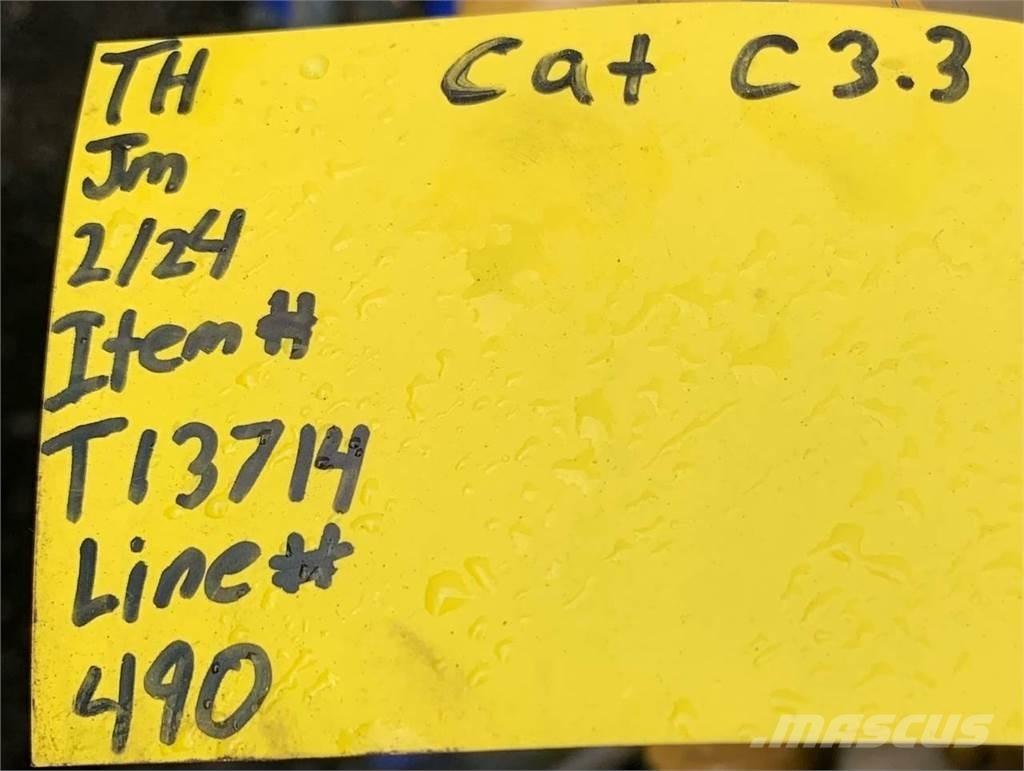 TH
Cat C3.3
Jm
2/24
Item#
T13714
Line#
490
MASCUS